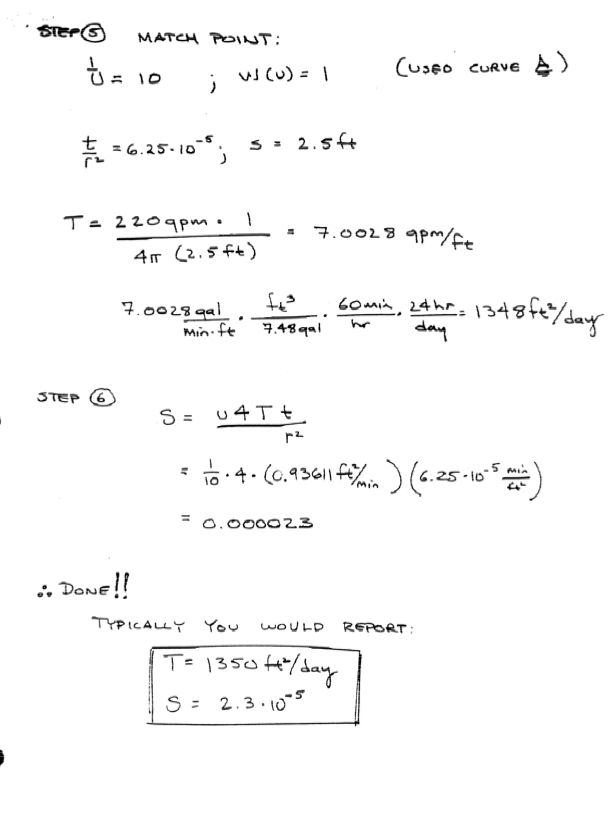 STEP ⑤ MATCH POINT:
1/U = 10 ; W(U) = 1 (USED CURVE A)
t/r² = 6.25·10⁻⁵; s = 2.5 ft
T = 220 gpm · 1 / 4π (2.5 ft) = 7.0028 gpm/ft
7.0028 gal / min·ft · ft³ / 7.48 gal · 60 min / hr · 24 hr / day = 1348 ft²/day
STEP ⑥
S = u4Tt / r²
= 1/10 · 4 · (0.93611 ft²/min) (6.25·10⁻⁵ min/ft²)
= 0.000023
∴ DONE!!
TYPICALLY YOU WOULD REPORT:
T = 1350 ft²/day
S = 2.3·10⁻⁵